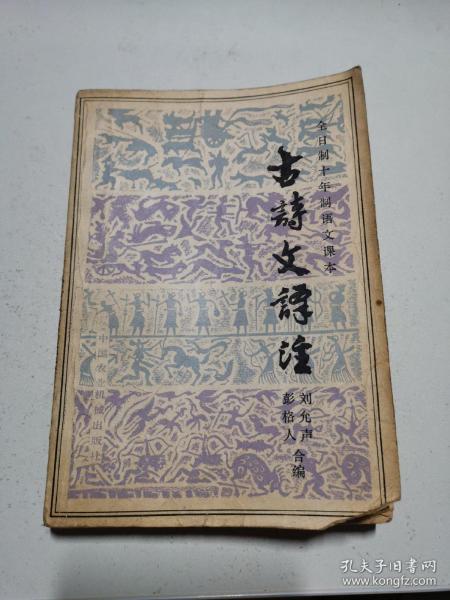 全日制十年制语文课本
古詩文譯注
刘允声
彭格人
合编
中国农业机械出版社
孔夫子旧书网
www.kongfz.com